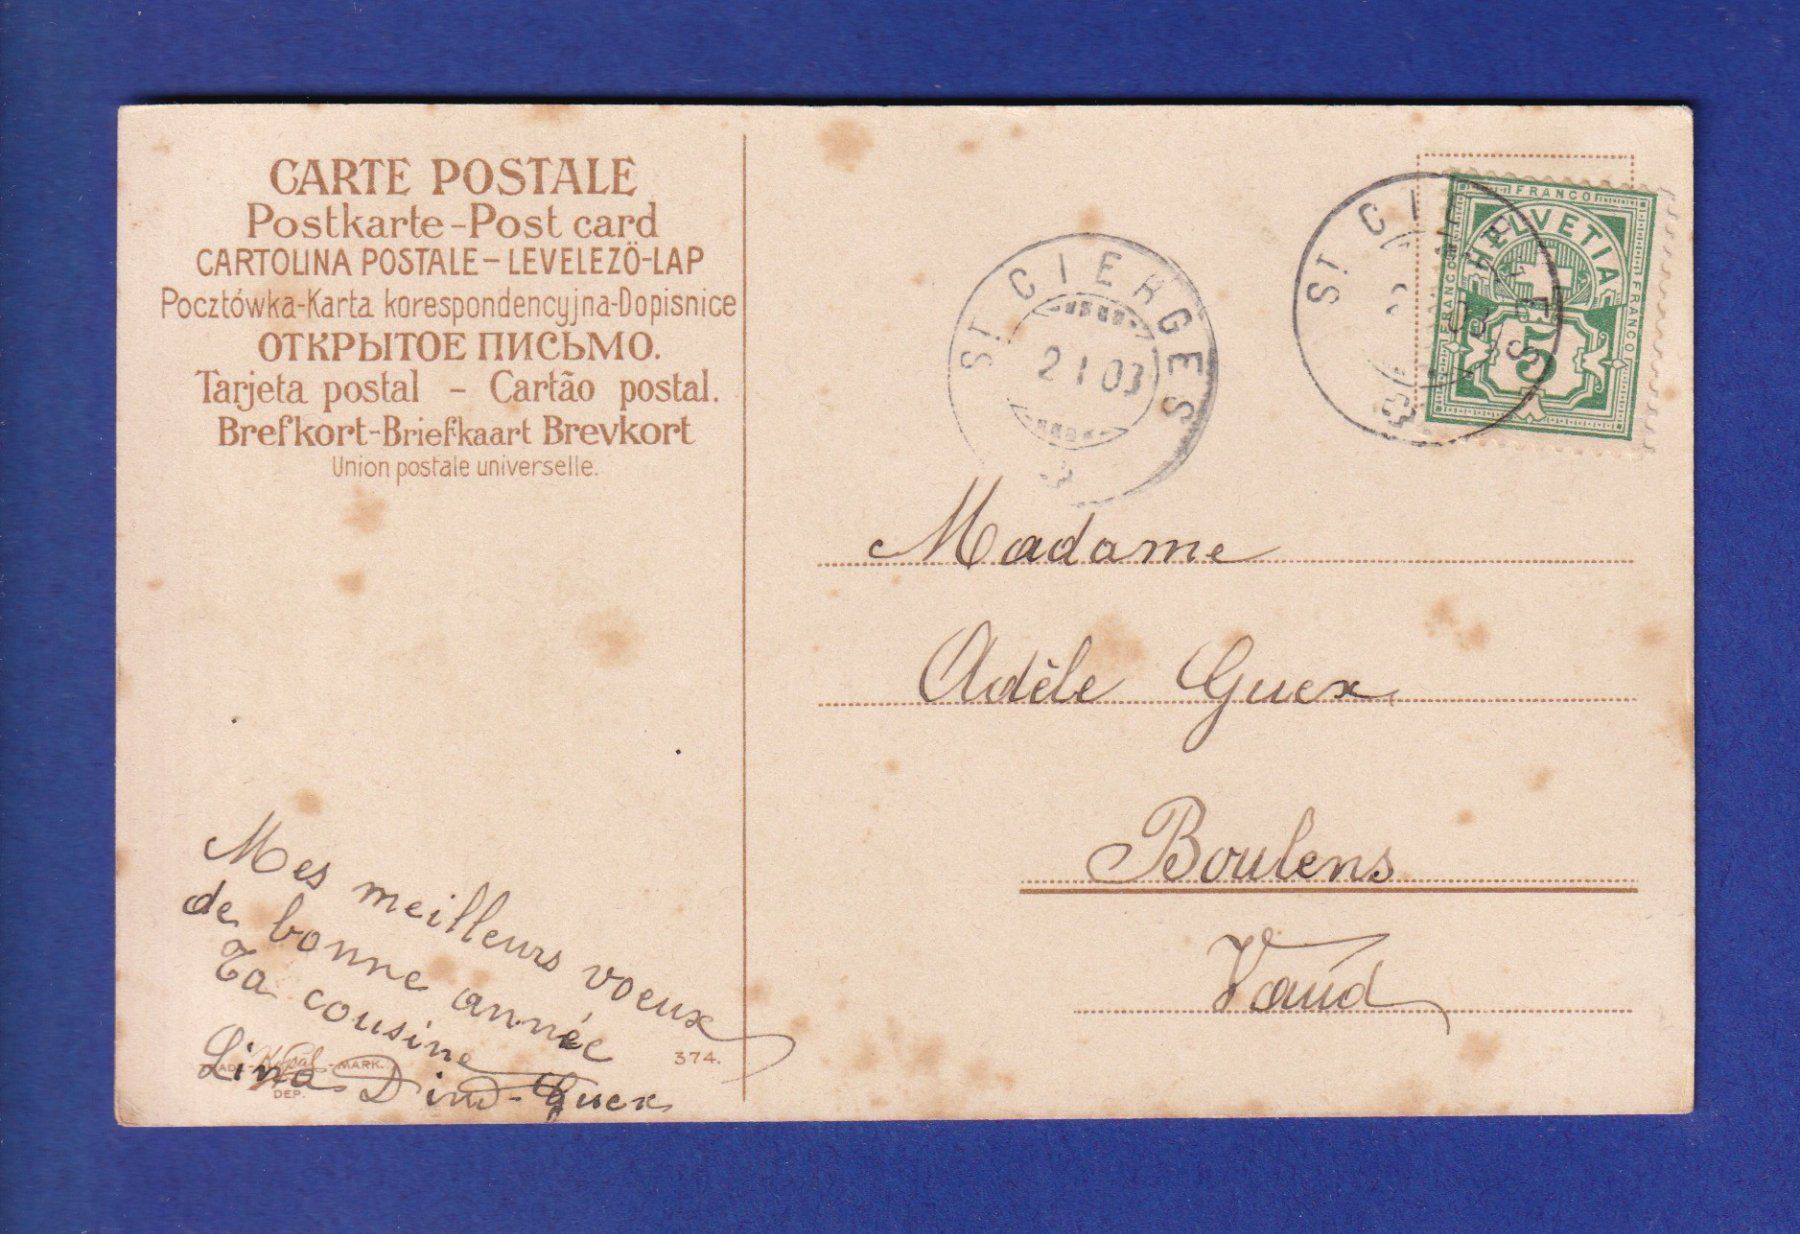 CARTE POSTALE
Postkarte-Post card
CARTOLINA POSTALE-LEVELEZÖ-LAP
Pocztówka-Karta korespondencyjna-Dopisnice
ОТКРЫТОЕ ПИСЬМО.
Tarjeta postal - Cartão postal.
Brefkort-Briefkaart Brevkort
Union postale universelle.
Mes meilleurs voeux
de bonne année
Ta cousine
Lina Dind-Guex
MARK.
DEP.
374.
ST CIERGES
2 I 03
ST CIERGES
03
FRANCO
FRANCO
FRANCO
HELVETIA
5
Madame
Adèle Guex
Boulens
Vaud